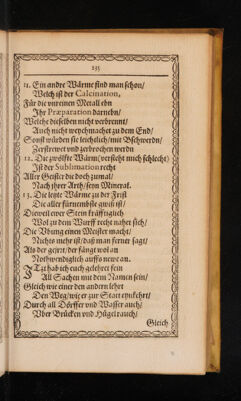 235
11. Ein andre Wärme sind man schon/
Welch ist der Calcination,
Für die unreinen Metall ehn
Ihr Præparation darnebn/
Welche dieselben nicht verbrennt/
Auch nicht weych machet zu dem End/
Sonst würden sie leichtlich/mit Bschwerdn/
Zerstrewet und zerbrochen werdn
12. Die zwölffte Wärm (versteht mich schlecht)
Ist der Sublimation recht
Aller Geister die doch zumal/
Nach jhrer Arth/seyn Mineral.
13. Die letzte Wärme zu der Frist
Die aller fürnembste gwiß ist/
Dieweil ewer Stein kräfftiglich
Wol zu dem Wurff recht nahet sich/
Die Vbung einen Meister macht/
Nichts mehr ist/daß man ferner sagt/
Als der geirrt/der fängt wol an
Nothwendiglich auffs newe an.
JTzt hab ich euch gelehret fein
All Sachen mit dem Namen sein/
Gleich wie einer den andern lehrt
Den Weg/wie er zur Statt
Durch all Dörffer und Wasser auch/
Vber Brücken und Hügel rauch/
Gleich